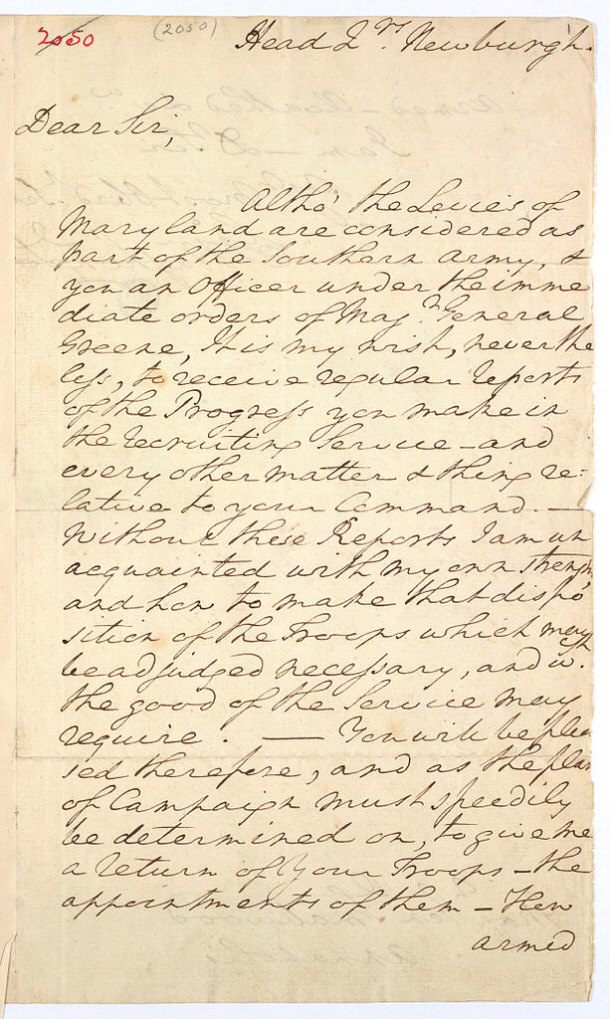 2050 (2050) Head Qrs. Newburgh.
Dear Sir,
Altho' the Levies of
Maryland are considered as
part of the Southern army, &
you an Officer under the imme
diate orders of Majr. General
Greene, It is my wish, neverthe
less, to receive regular reports
of the Progress you make in
the recruiting Service – and
every other matter & thing re=
lative to your Command. —
Without these Reports I am un
acquainted with my own strength,
and how to make that dispo
sition of the Troops which may
be adjudged necessary, and wch.
the good of the Service may
require. — You will be plea
sed therefore, and as the plan
of Campaign must speedily
be determined on, to give me
a return of Your Troops – the
appointments of them – How
armed